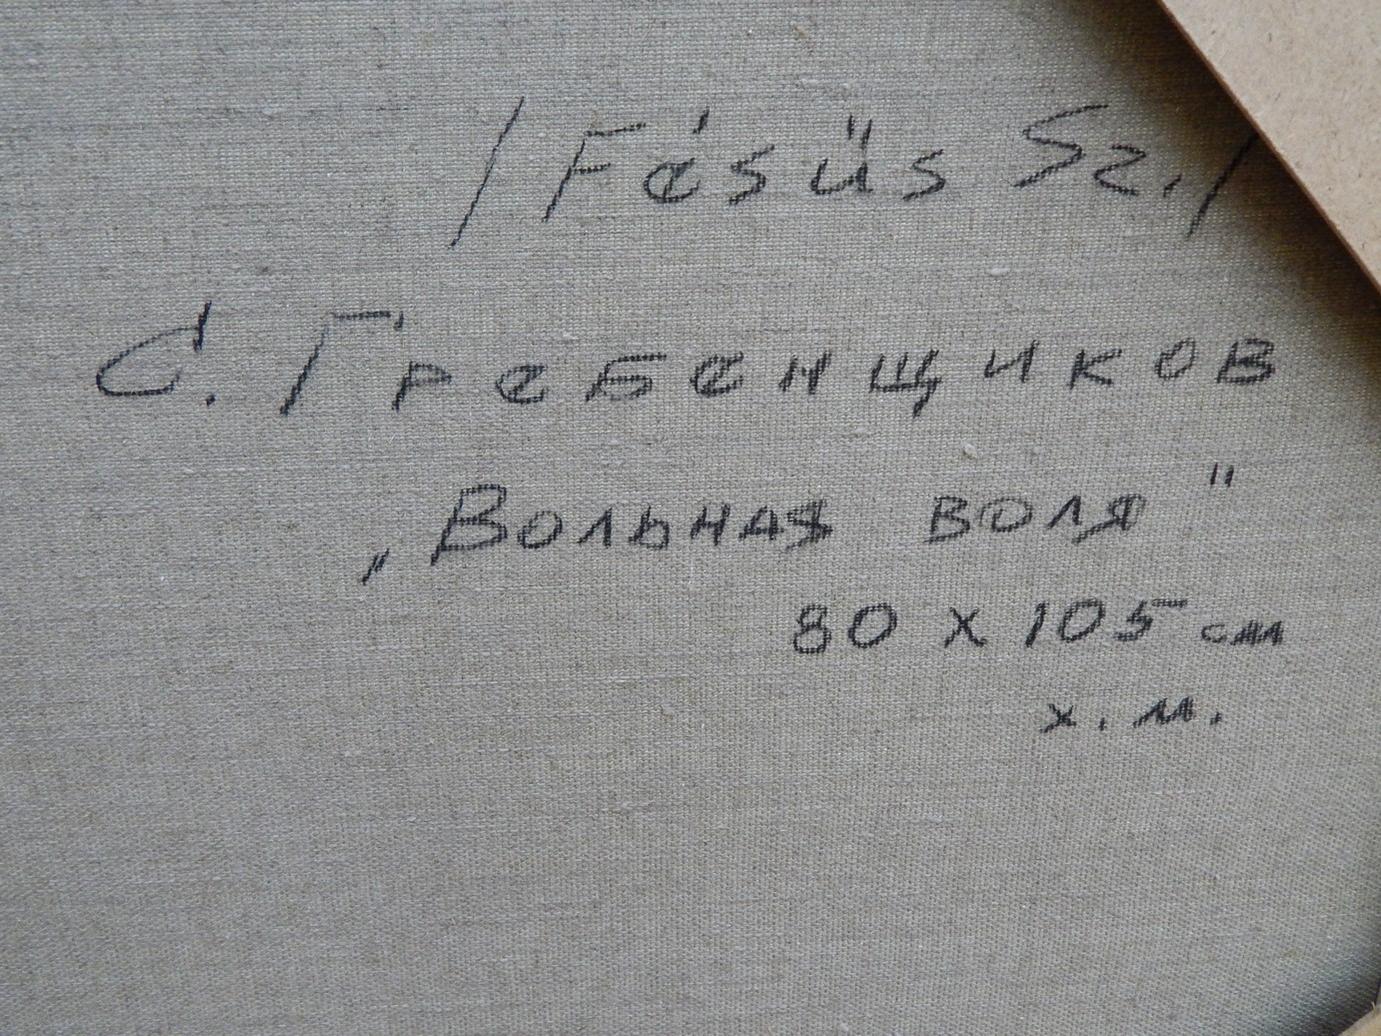 /Fésűs Sz./
С. Гребенщиков
„Вольная воля"
80 х 105 см
х. м.